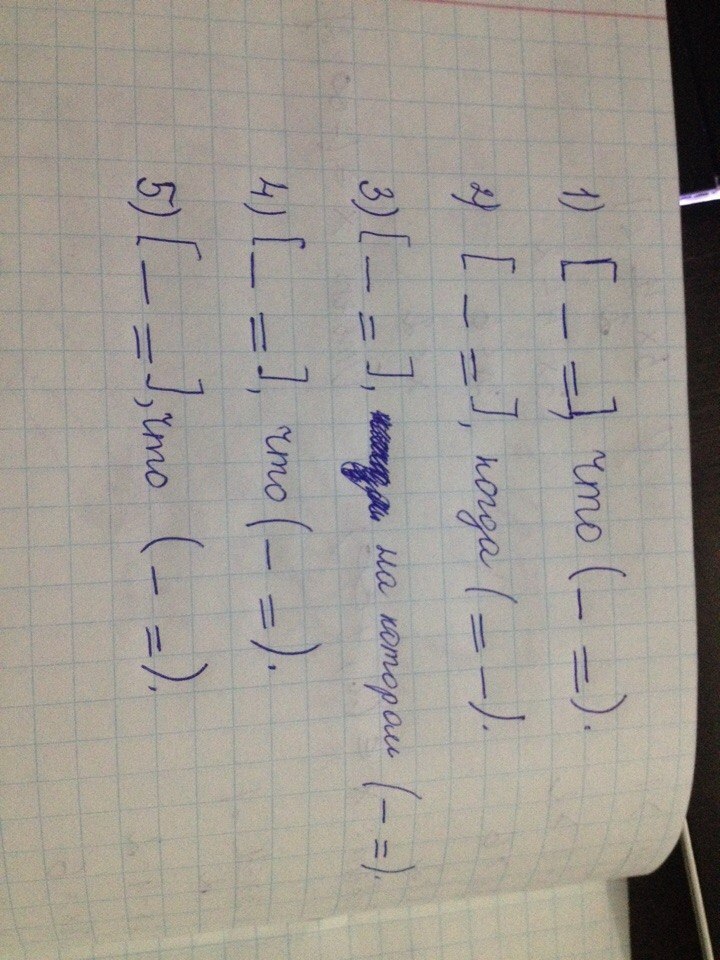 1) [ — = ], что ( — = ).
2) [ — = ], когда ( = — ).
3) [ — = ], на котором ( — = ).
4) [ — = ], что ( — = ).
5) [ — = ], что ( — = ).